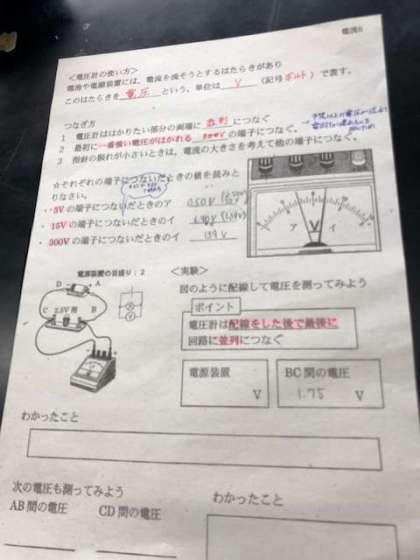 電流8
＜電圧計の使い方＞
電池や電源装置には、電流を流そうとするはたらきがあり
このはたらきを 電圧 という。単位は V （記号ボルト）で表す。
つなぎ方
1 電圧計ははかりたい部分の両端に 並列 につなぐ
2 最初に一番強い電圧がはかれる 300V の端子につなぐ。
3 指針の振れが小さいときは、電流の大きさを考えて他の端子につなぐ。
☆それぞれの端子につないだときの値を読みと
りなさい。
・3Vの端子につないだときのア
・15Vの端子につないだときのイ
・300Vの端子につないだときのイ
ア イ
V
電源装置の目盛り：2
D A
C 2.5V用 B
V
＜実験＞
図のように配線して電圧を測ってみよう
ポイント
電圧計は配線をした後で最後に
回路に並列につなぐ
電源装置
V
BC間の電圧
1.75 V
わかったこと
次の電圧も測ってみよう
AB間の電圧 CD間の電圧
わかったこと